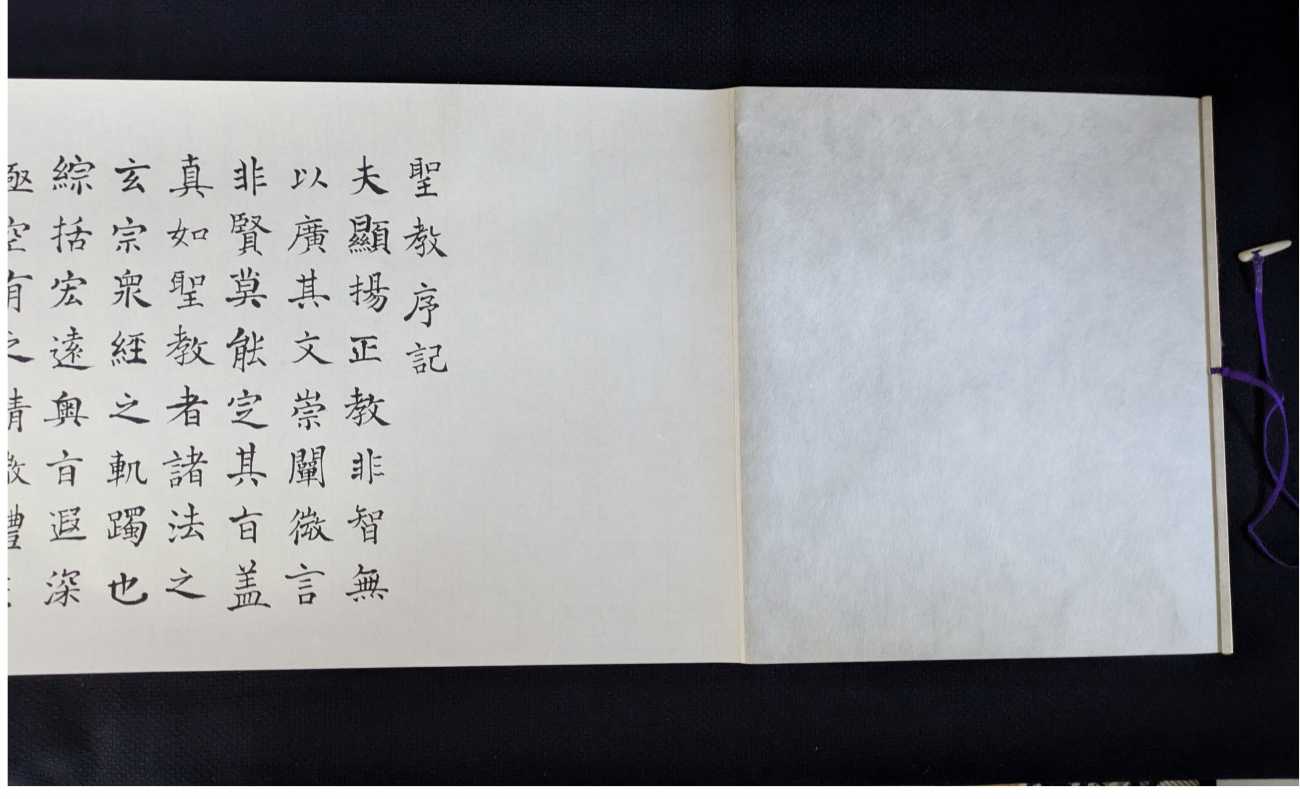 聖教序記
夫顯揚正教非智無
以廣其文崇闡微言
非賢莫能定其旨盖
真如聖教者諸法之
玄宗衆經之軌躅也
綜括宏遠奧旨遐深
極空有之精微體